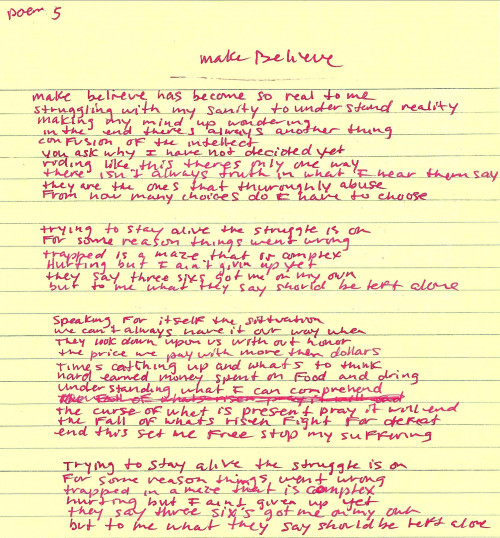 Poem 5
make Believe
make believe has become so real to me
struggling with my sanity to understand reality
making my mind up wondering
in the end theres always another thing
confusion of the intellect
you ask why I have not decided yet
riding like this theres only one way
there isn't always truth in what I hear them say
they are the ones that thuroughly abuse
From how many choices do I have to choose
trying to stay alive the struggle is on
For some reason things went wrong
trapped is a maze that is complex
Hurting but I ain't givin up yet
they say three sixs got me on my own
but to me what they say should be left alone
Speaking For itself the sittvation
we can't always have it our way when
They look down upon us with out honor
the price we pay with more then dollars
Times catching up and whats to think
hard earned money spent on Food and dring
understanding what I can comprehend
the curse of whet is present pray it will end
the Fall of whats risen Fight For defeat
end this set me Free stop my suffering
Trying to stay alive the struggle is on
For some reason things went wrong
trapped in a maze that is complex
hurting but I aint given up yet
they say three six's got me on my own
but to me what they say should be left alone